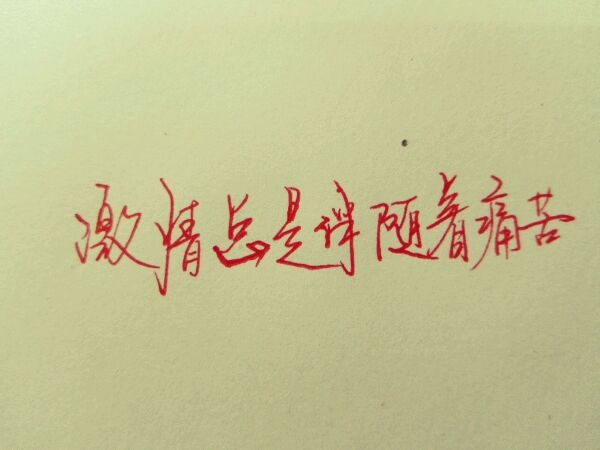 激情总是伴随着痛苦